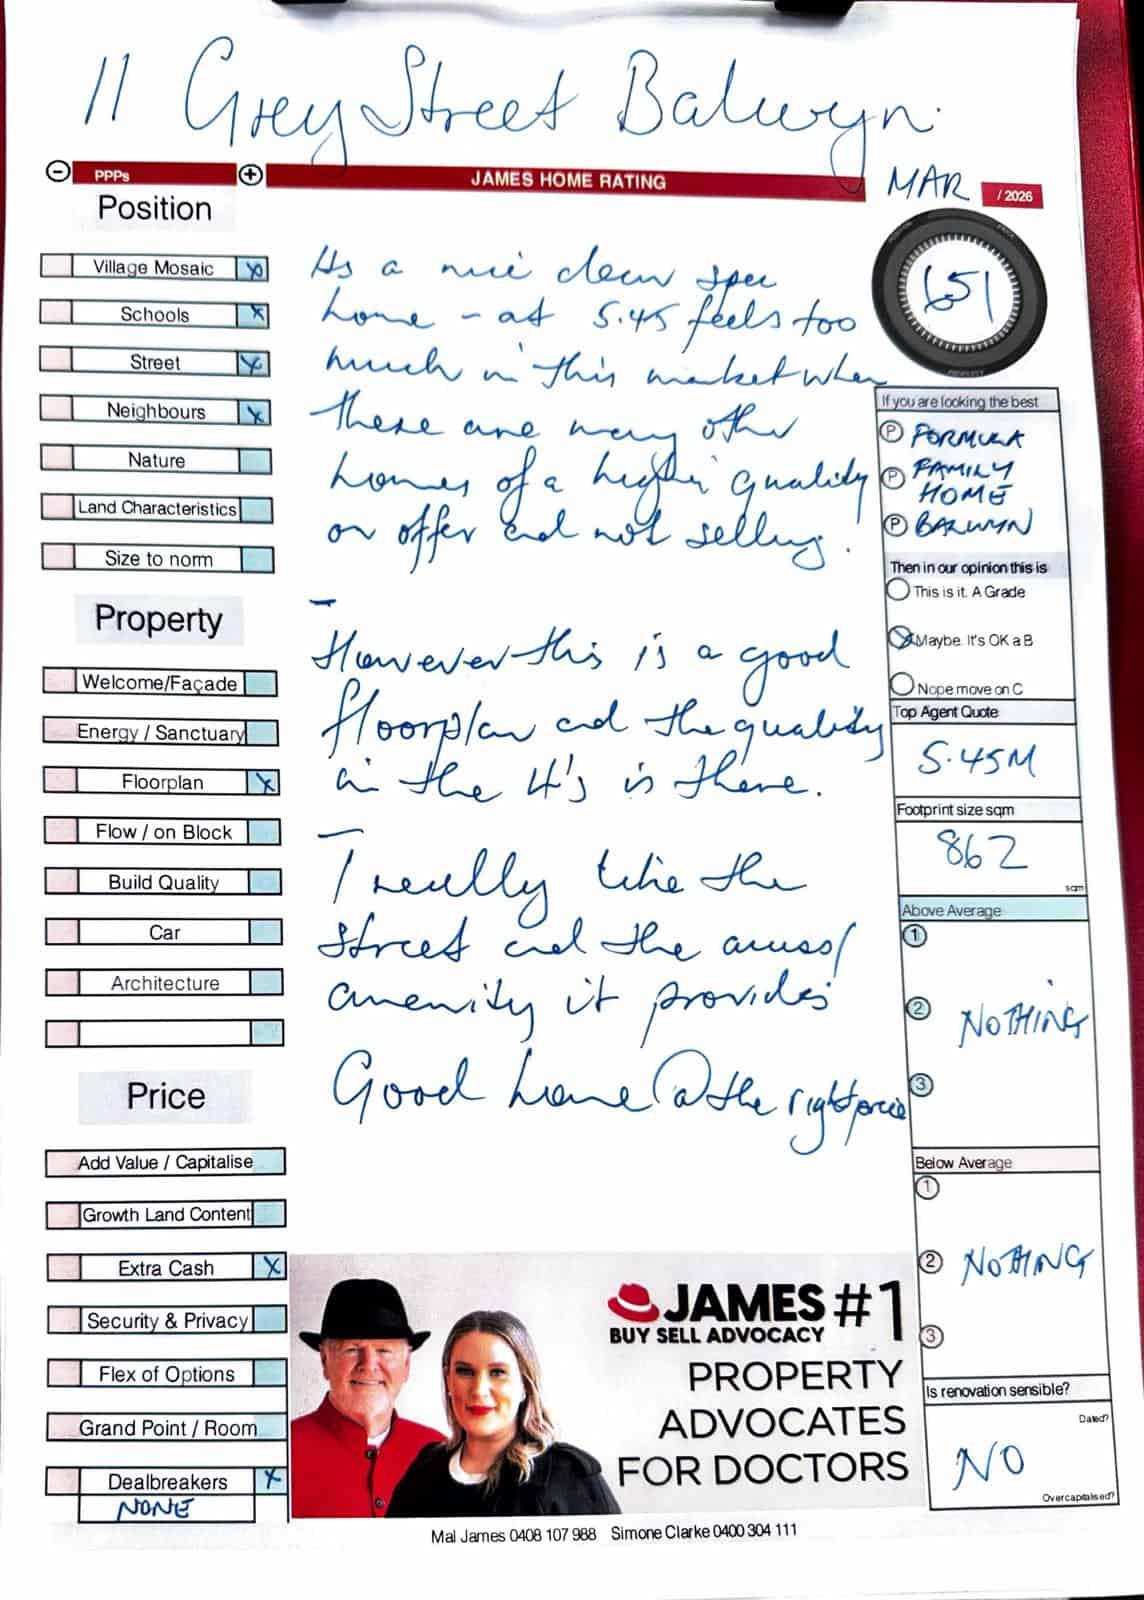 11 Grey Street Balwyn.
PPPs
JAMES HOME RATING
MAR / 2026
651
Position
Village Mosaic
Schools
Street
Neighbours
Nature
Land Characteristics
Size to norm
Property
Welcome/Façade
Energy / Sanctuary
Floorplan
Flow / on Block
Build Quality
Car
Architecture
Price
Add Value / Capitalise
Growth Land Content
Extra Cash
Security & Privacy
Flex of Options
Grand Point / Room
Dealbreakers
NONE
Its a nice clean spec
home - at 5.45 feels too
much in this market when
there are many other
homes of a higher quality
on offer and not selling.
-
However this is a good
floorplan and the quality
in the 4's is there.
-
I really like the
street and the access/
amenity it provides
Good home @ the right price
If you are looking the best
P FORMULA
P FAMILY
HOME
P BALWYN
Then in our opinion this is
This is it. A Grade
Maybe. It's OK a B
Nope move on C
Top Agent Quote
5.45M
Footprint size sqm
862
sqm
Above Average
1
2 NOTHING
3
Below Average
1
2 NOTHING
3
Is renovation sensible?
Dated?
NO
Overcapitalised?
JAMES #1
BUY SELL ADVOCACY
PROPERTY
ADVOCATES
FOR DOCTORS
Mal James 0408 107 988 Simone Clarke 0400 304 111